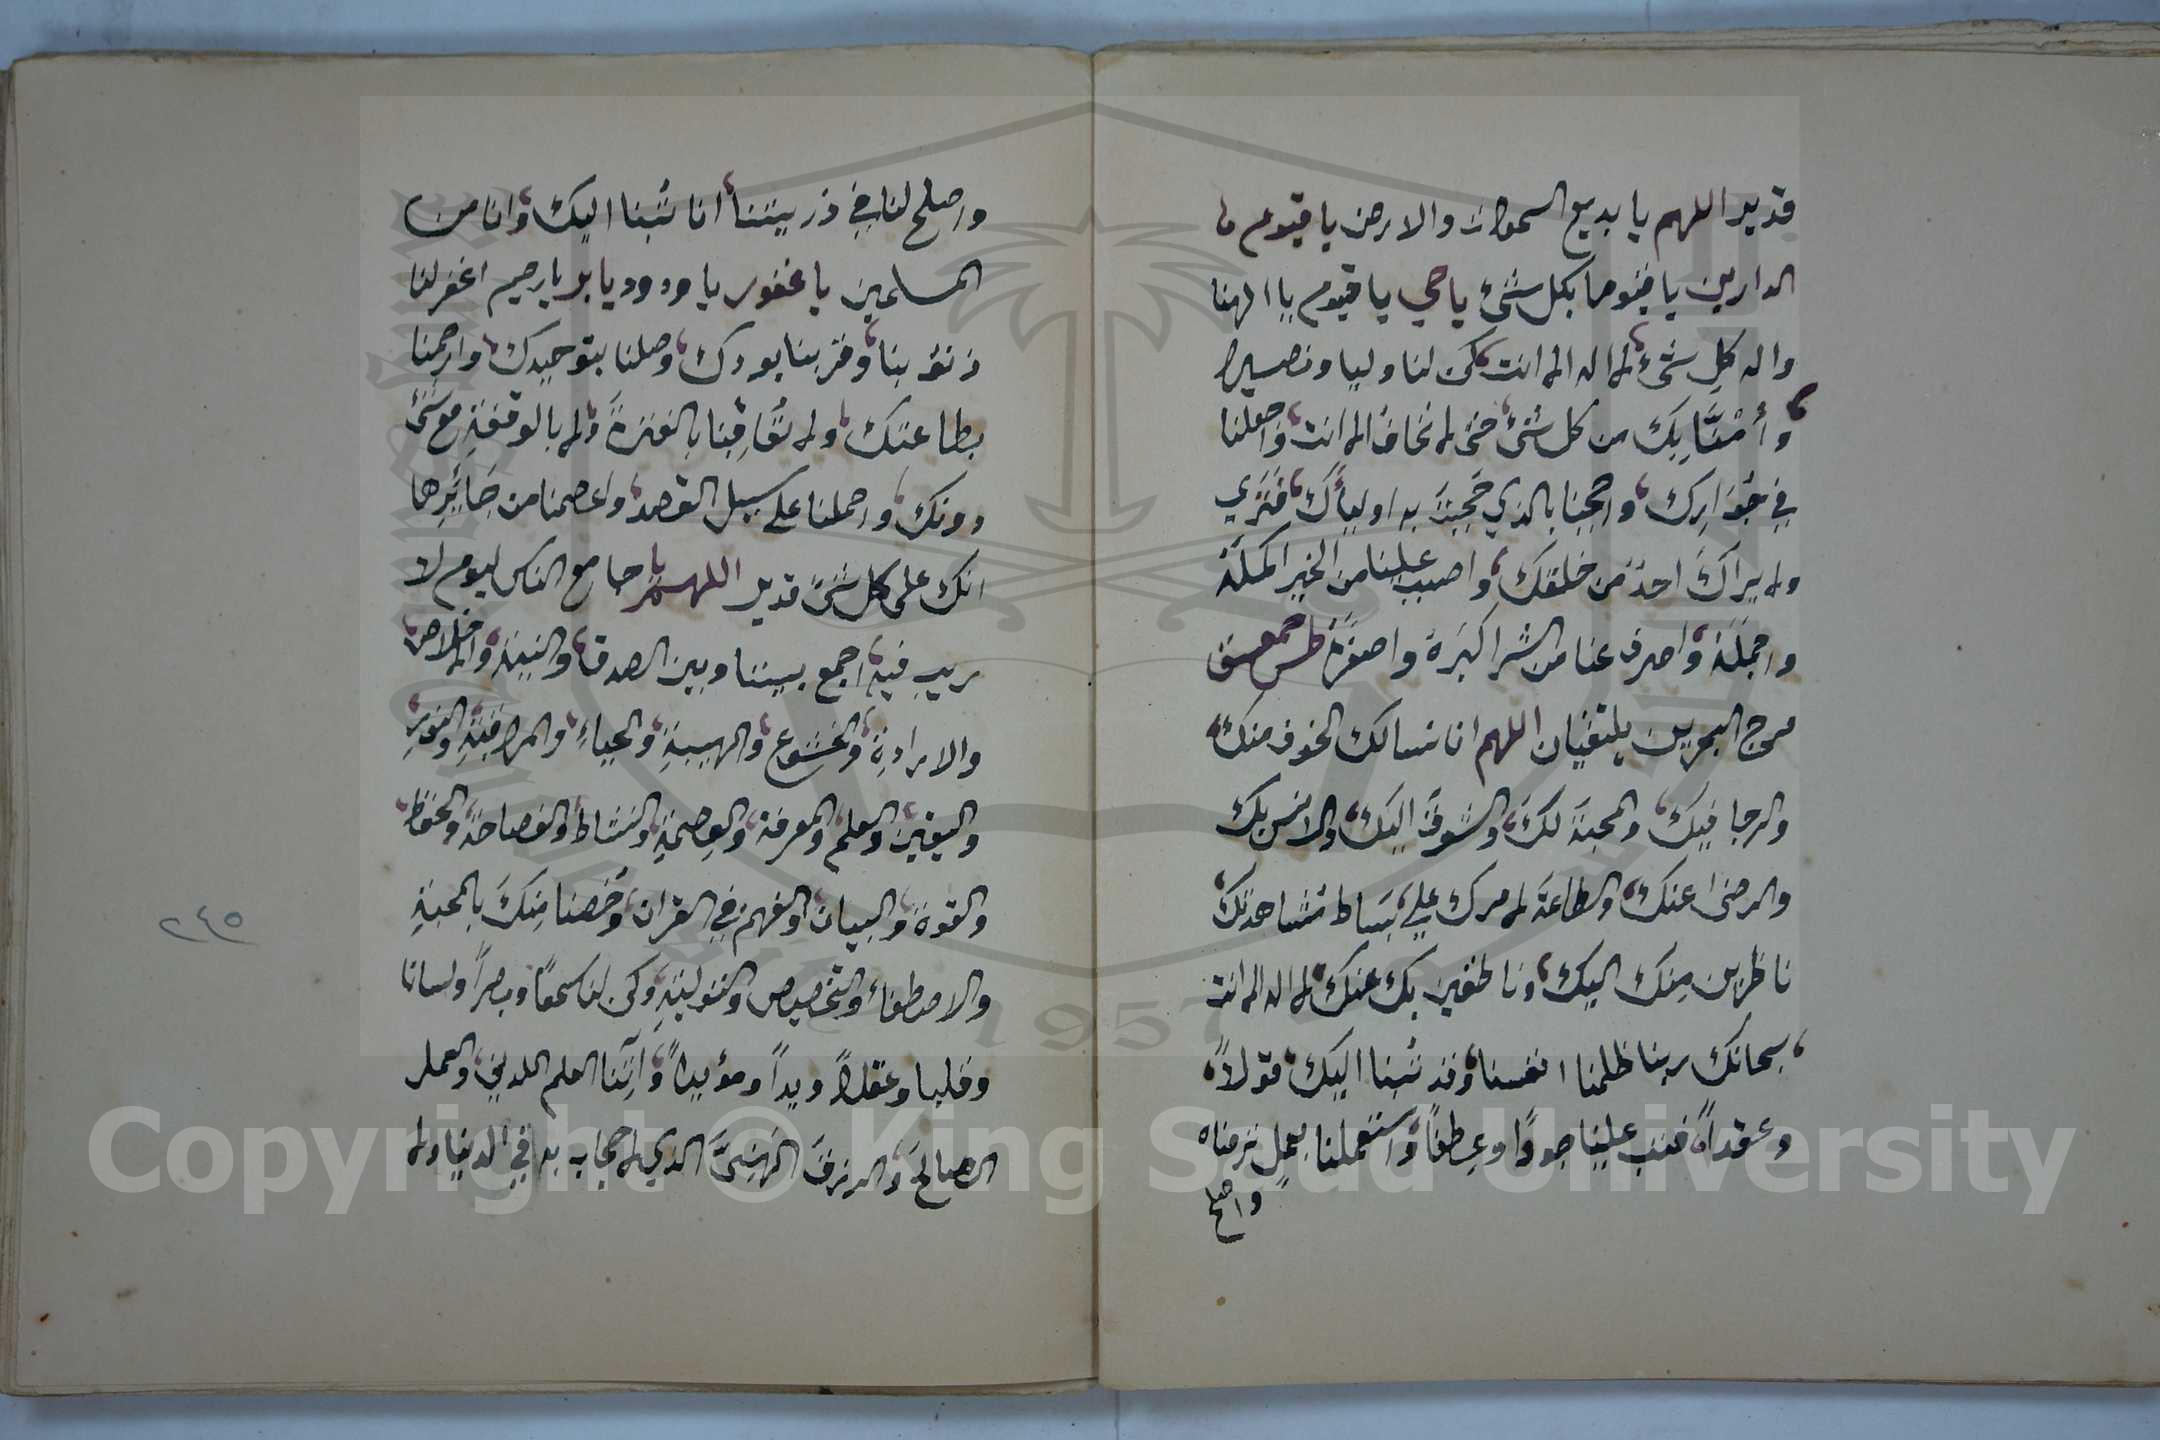 قدير اللهم يا بديع السموات والارض يا قيوم
الدارين يا قيوما بكل شئ يا حي يا قيوم يا الهنا
واله كل شئ لا اله الا انت كن لنا وليا ونصيرا
وأمنّا بك من كل شئ حتى لا نخاف الا انت واجعلنا
في جوارك واحجبنا بالذي حجبت به اوليأك فترى
ولا يراك احد من خلقك واصبب علينا من الخير اكمله
واجمله واصرف عنا من الشر اكبره واصغره طس حمعسق
مرج البحرين يلتقيان اللهم انا نسالك الخوف منك
والرجا فيك والمحبة لك والشوق اليك والانس بك
والرضى عنك والطاعة لامرك على بساط مشاهدتك
ناظرين منك اليك وناطقين بك عنك لا اله الا انت
سبحانك ربنا ظلمنا انفسنا وقد تبنا اليك قولاً
وعقداً فتب علينا جودًا وعطفاً واستعملنا بعمل ترضاه
واصلح
واصلح لنا في ذريتنا انا تبنا اليك وانا من
المسلمين يا غفور يا ودود يا بر يا رحيم اغفر لنا
ذنوبنا وقربنا بودك وصلنا بتوحيدك وارحمنا
بطاعتك ولا تعاقبنا بالفترة ولا بالوقفة مع شئ
دونك واحملنا على سبيل القصد واعصمنا من جائرها
انك على كل شئ قدير اللهم يا جامع الناس ليوم لا
ريب فيه اجمع بيننا وبين الصدق والنية والاخلاص
والارادة والخشوع والهيبة والحياء والمراقبة والنور
واليقين والعلم والمعرفة والعصمة والنشاط والفصاحة والحفظ
والقوة والبيان والفهم في القران وخصنا منك بالمحبة
والاصطفاء والتخصيص والتولية وكن لنا سمعًا وبصراً ولسانا
وقلبا وعقلاً ويداً ومؤيداً وآتنا العلم اللدني والعمل
الصالح والرزق الهنئ الذي لا حجاب به في الدنيا ولا
٢٤٥
1957
Copyright © King Saud University